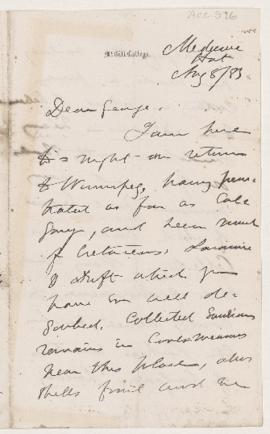 Acc 596
McGill College.
Medicine
Hat
Aug 8/83
Dear George.
I am here
to night on return
to Winnipeg, having pene
trated as far as Cal
gary, and seen much
of Cretaceous, Laramie
& drift which you
have so well de
scribed. Collected Saurian
remains in
near this place, also
shells fruit and